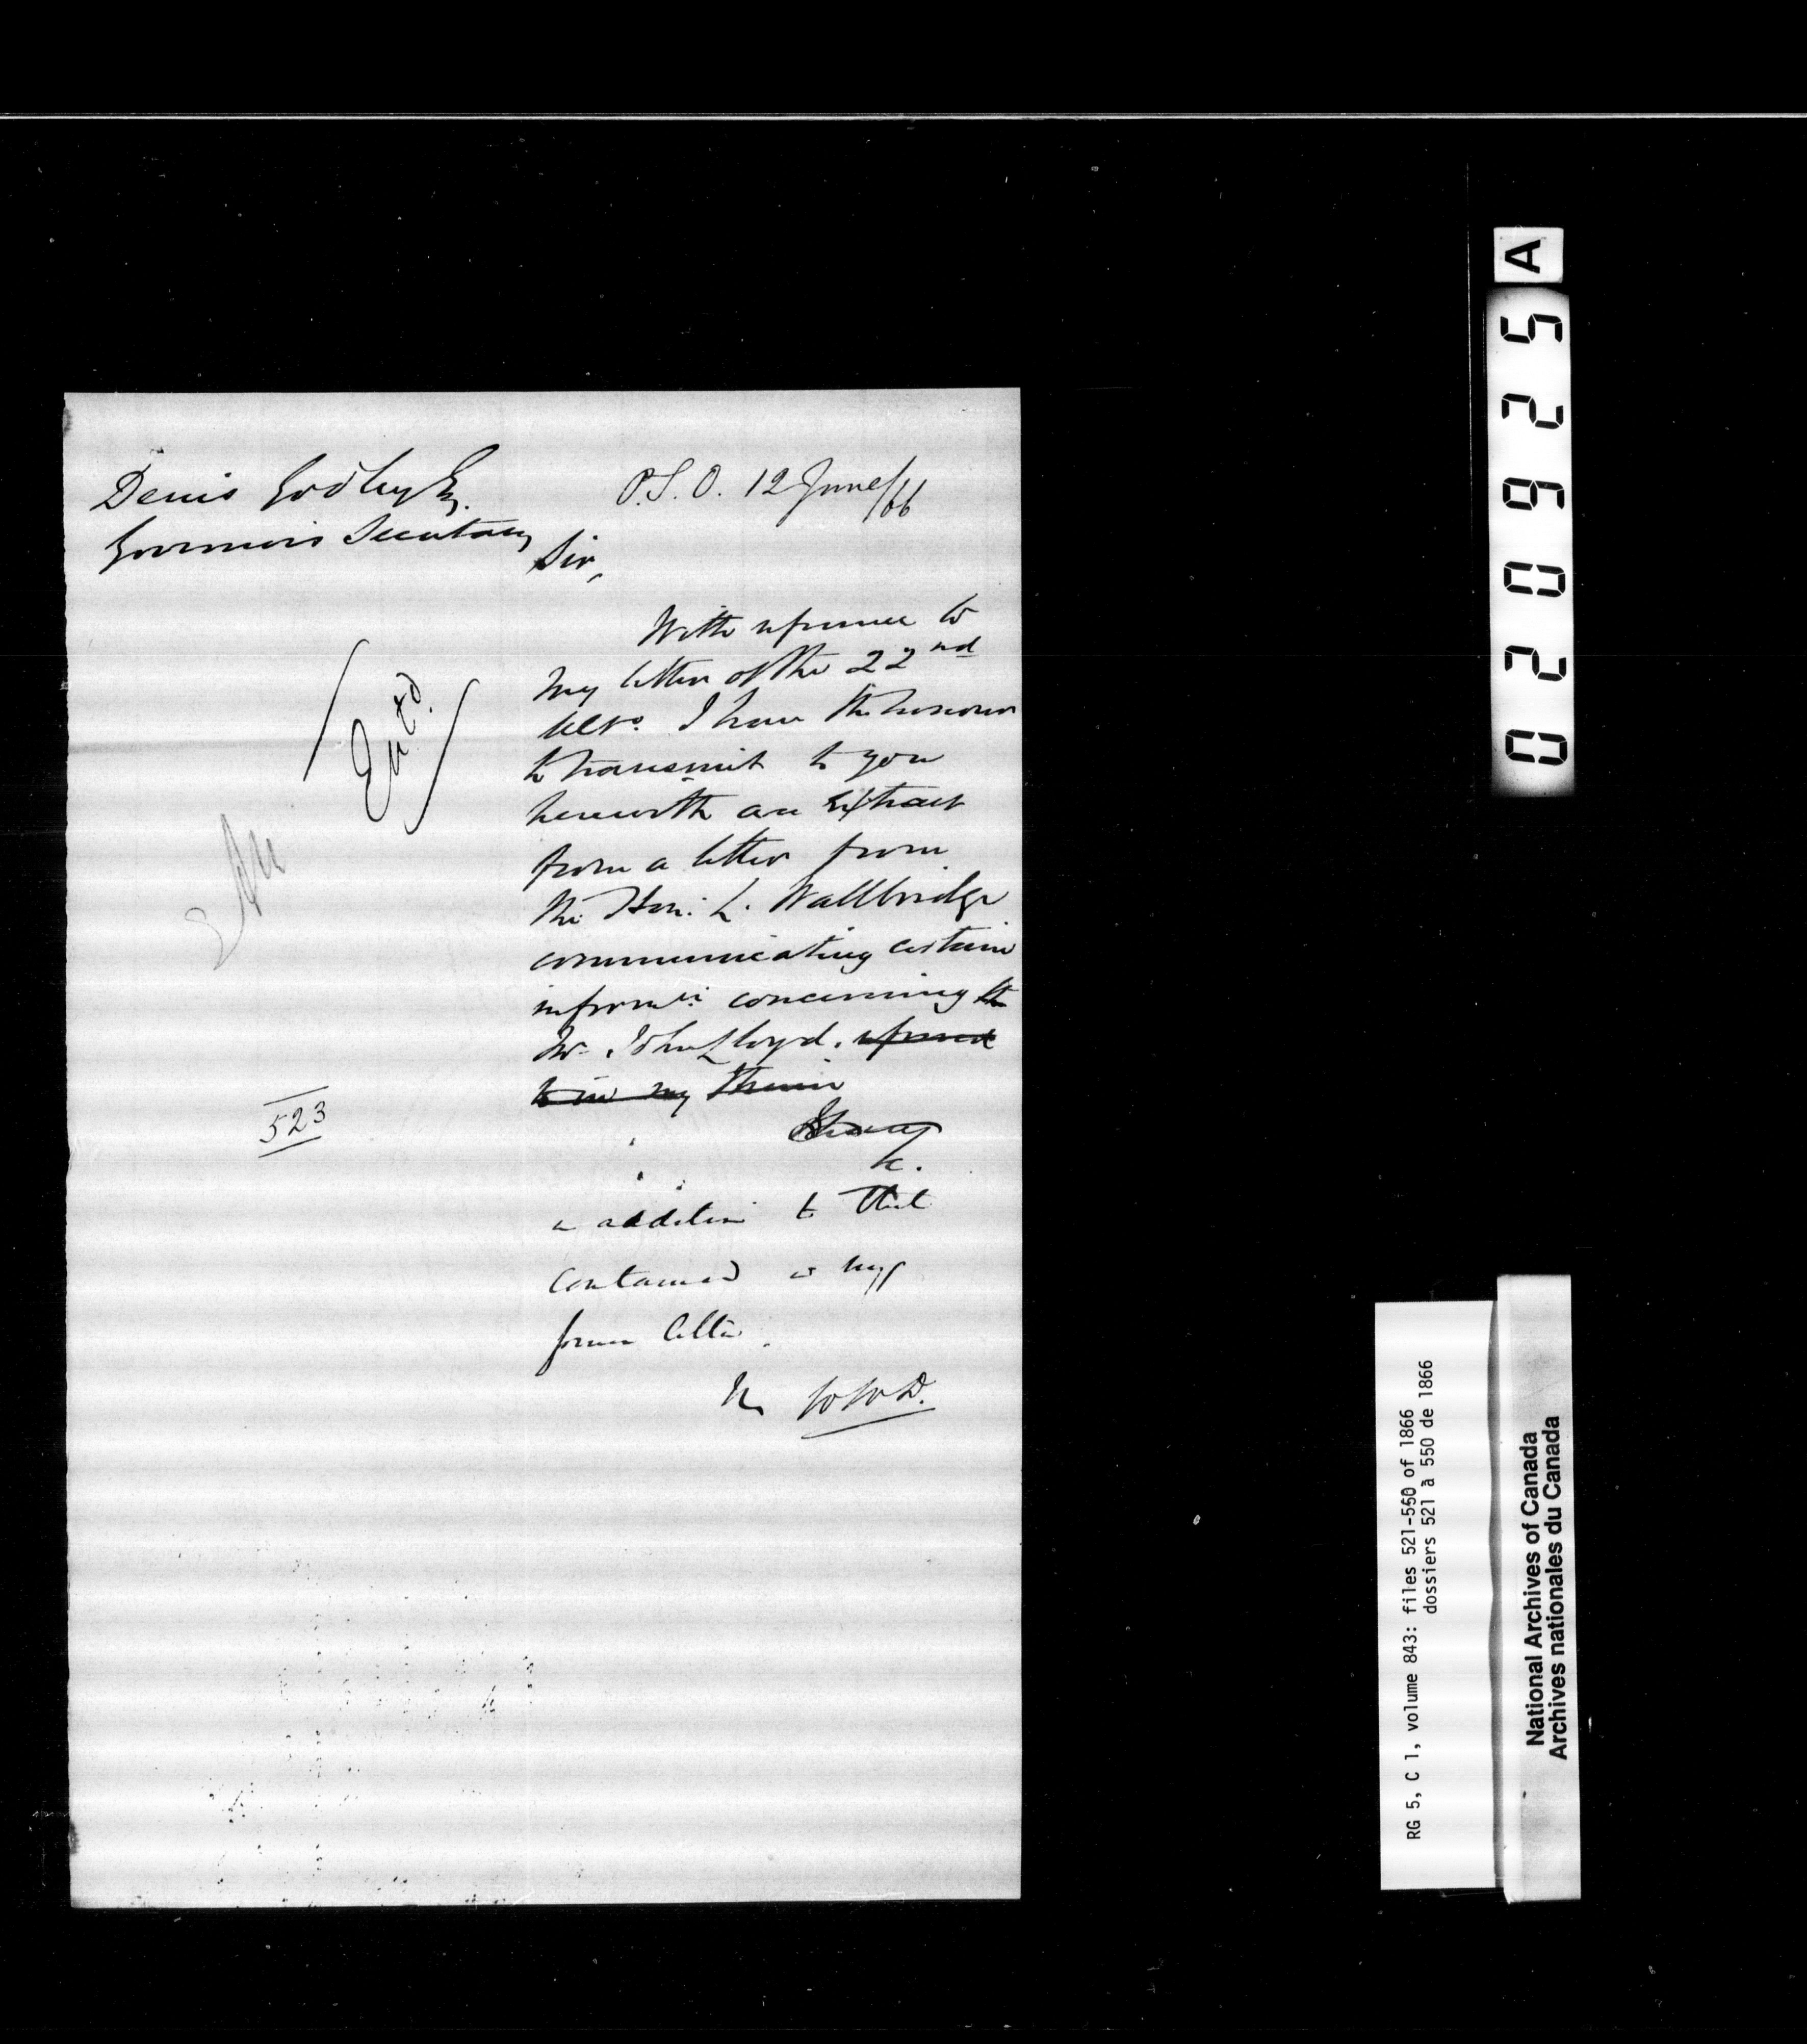 Denis Godley Esq.
Governor's Secretary
P.S.O. 12 June/66
Sir,
With reference to
my letter of the 22nd
Ulto. I have the honour
to transmit to you
herewith an Extract
from a letter from
the Hon: L. Wallbridge
communicating certain
informn. concerning the
Mr. John Lloyd. referred
to in my therein
&c.
in addition to that
contained in my
former letter.
W W D.
Entd.
523
A
020925
RG 5, C 1, volume 843: files 521-550 of 1866
dossiers 521 à 550 de 1866
National Archives of Canada
Archives nationales du Canada